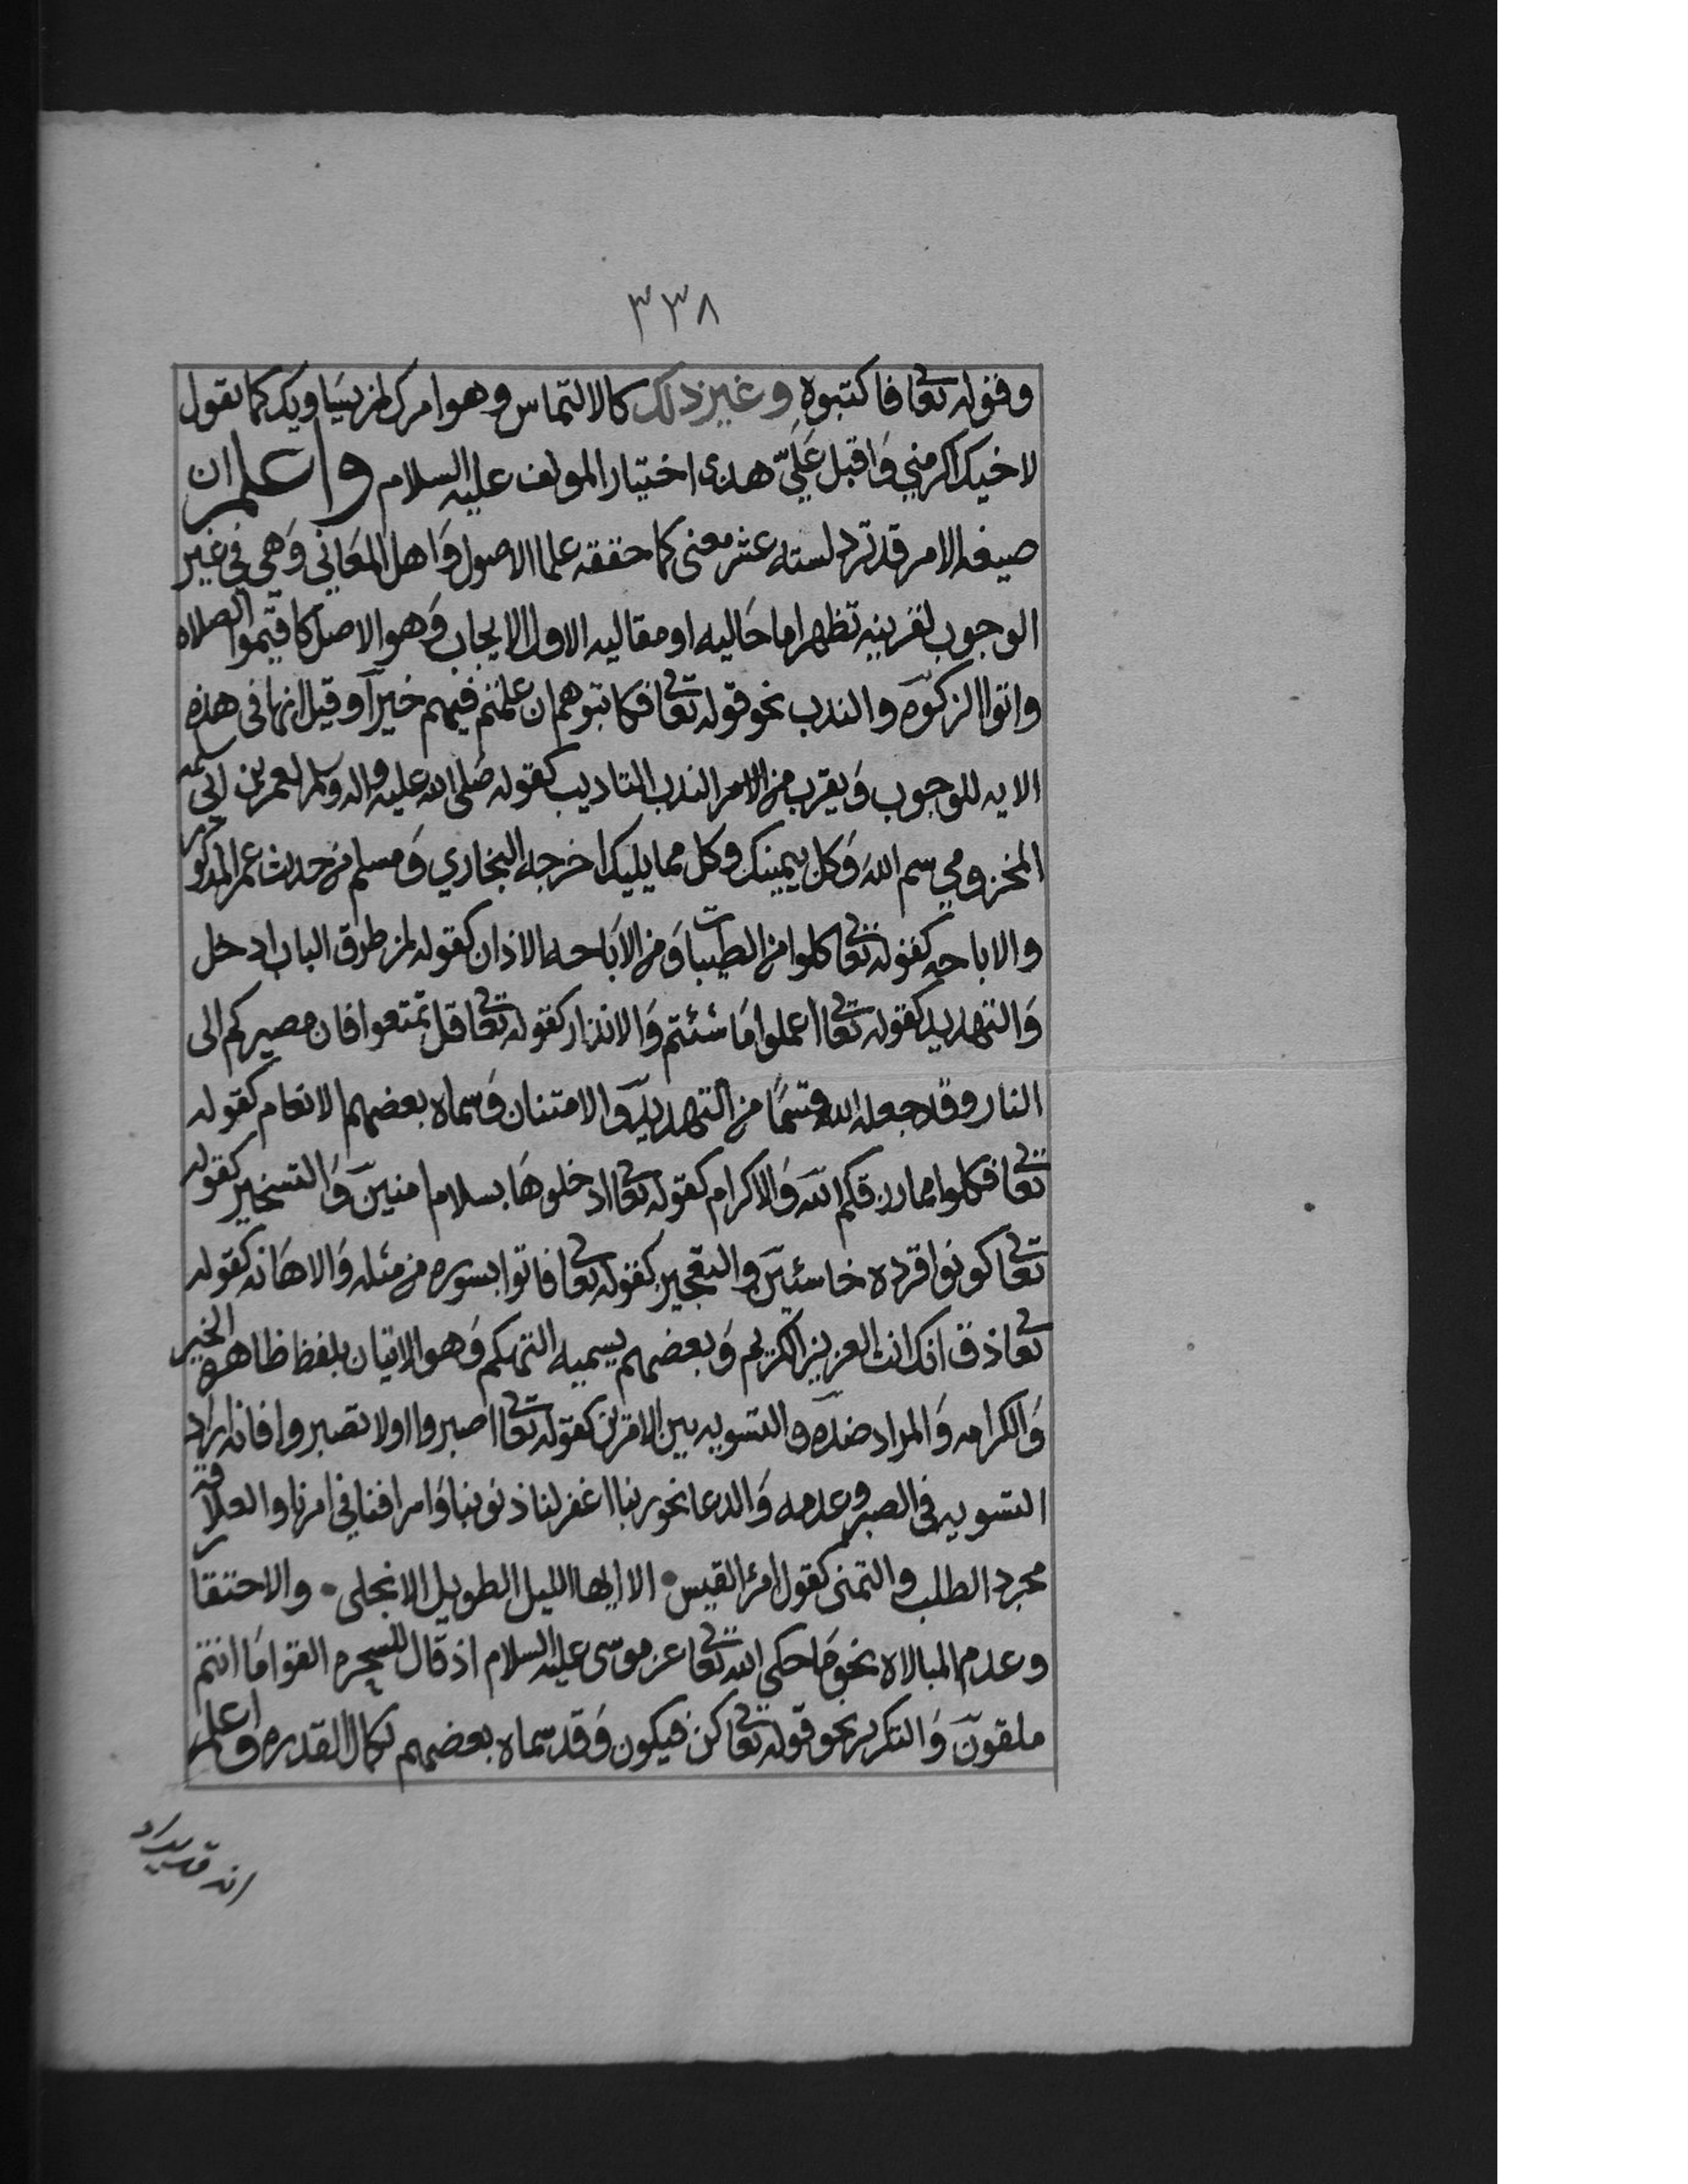 ٣٣٨
وقوله تعالى فاكتبوه وغير ذلك كالالتماس وهو امرك لمن يساويك كما تقول
لاخيك اكرمني وَاقبل عَلَيّ هذى اختيار المولف عليه السلام واعلم ان
صيغه الامر قد ترد لسته عشر معنى كما حققه علما الاصول وَاهل المعَاني وَهي في غير
الوجوب لقرينه تظهر اما حَاليه او مقاليه الاول الايجاب وَهو الاصل كاقيموا الصلاه
واتوا الزكوه والندب نحو قوله تعالى فكاتبوهم ان علمتم فيهم خيرا وقيل انها في هذه
الايه للوجوب وَيقرب من الامر الندب التاديب كقوله صَلى الله عليه واله وسلم لعمر بن ابي سلمه
المخزومي سم الله وَكل بيمينك وكل مما يليك اخرجه البخاري وَمسلم من حدث عمر المذكور
والاباحه كقوله تعالى كلوا من الطيبات وَمن الاَباحه الاذان كقوله لمن طرق الباب ادخل
وَالتهديد كقوله تعالى اعملوا مَا شئتم وَالانذار كقوله تعالى قل تمتعوا فان مصيركم الى
النار وقد جعله الله قسمًا من التهديد وَالامتنان وَسماه بعضهم الانعام كقوله
تعالى فكلوا مما رزقكم الله وَالاكرام كقوله تعالى ادخلوهَا بسلام امنين وَالتسخير كقوله
تعالى كونوا قرده خاسئين والتعجيز كقوله تعالى فاتوا بسوره من مثله وَالاهَانه كقوله
تعالى ذق انك انت العزيز الكريم وَبعضهم يسميه التهكم وَهو الاتيان بلفظ ظاهره الخير
وَالكرامه وَالمراد ضده والتسويه بين الامرين كقوله تعالى اصبروا اولا تصبروا فانه اراد
التسويه في الصبر وعدمه وَالدعا نحو ربنا اغفر لنا ذنوبنا وَاسرافنا في امرنا والعلاقه
مجرد الطلب والتمني كقول امرء القيس • الا ايها الليل الطويل الا انجلى • والاحتقار
وعدم المبالاه نحو مَا حكى الله تعالى عن موسى عليه السلام اذ قال للسحره القوا مَا انتم
ملقون وَالتكرير نحو قوله تعالى كن فيكون وَقد سماه بعضهم كمال القدره واعلم
انه قد يراد